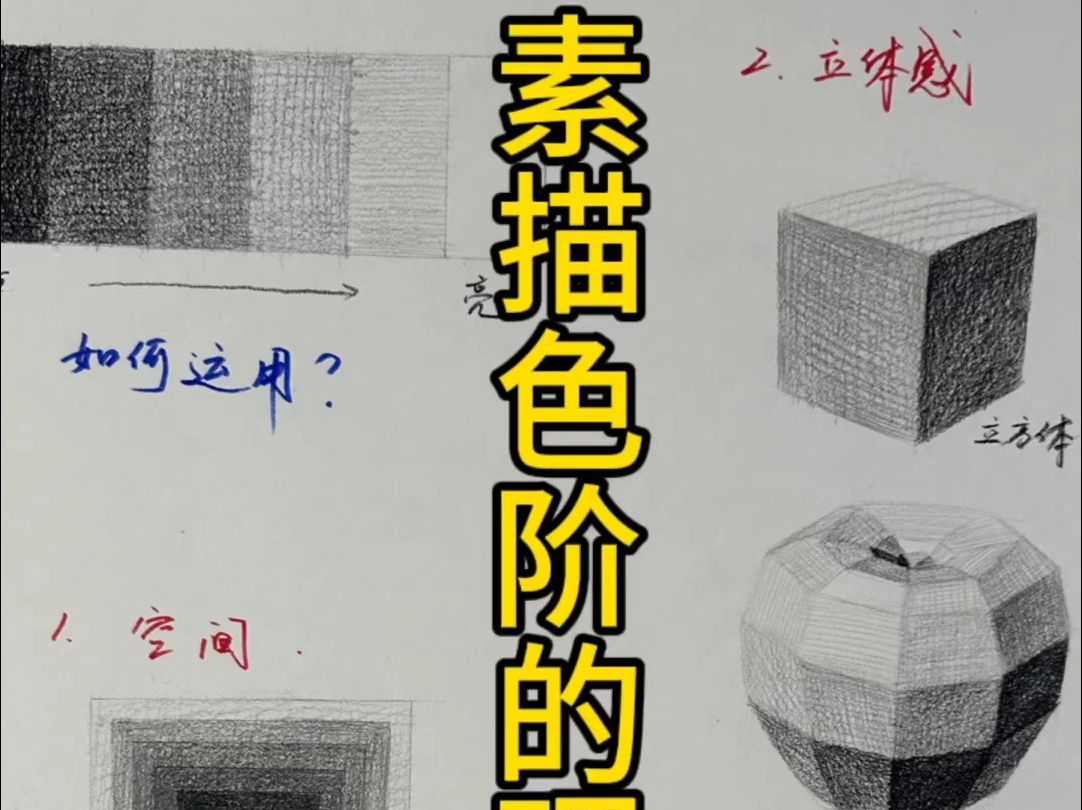 素描色阶的
亮
如何运用？
1. 空间.
2. 立体感
立方体